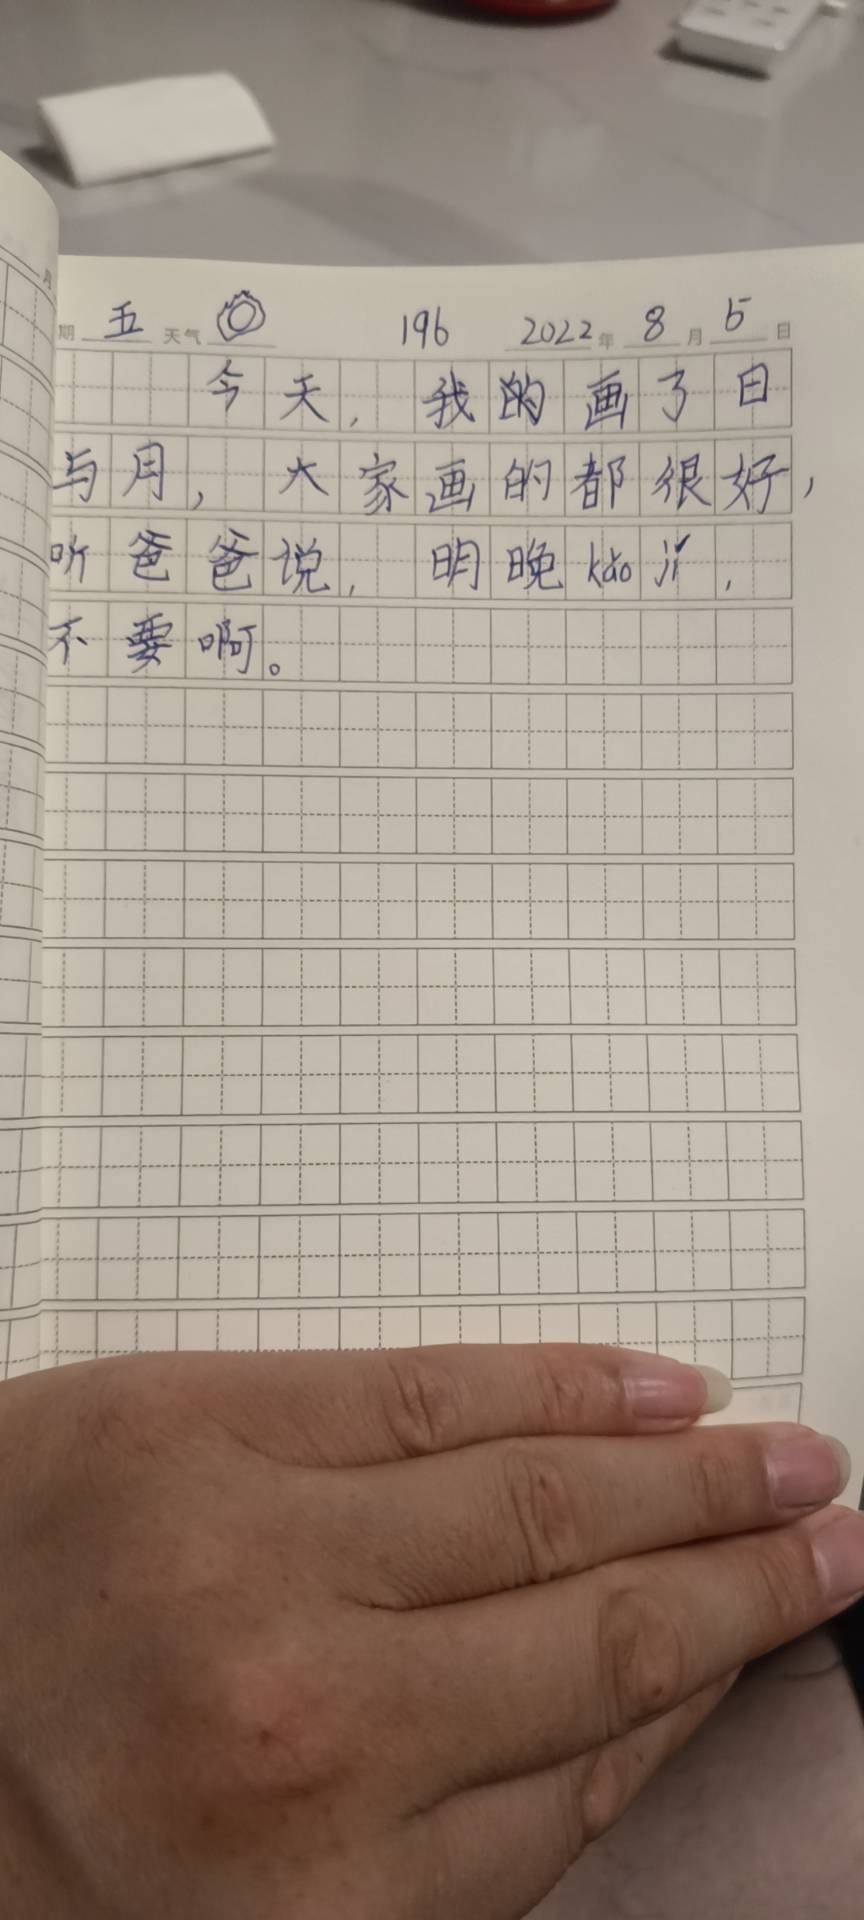 期 五 天气 196 2022 年 8 月 5 日
今天，我的画了日
与月，大家画的都很好，
听爸爸说，明晚kǎo jǐ，
不要啊。